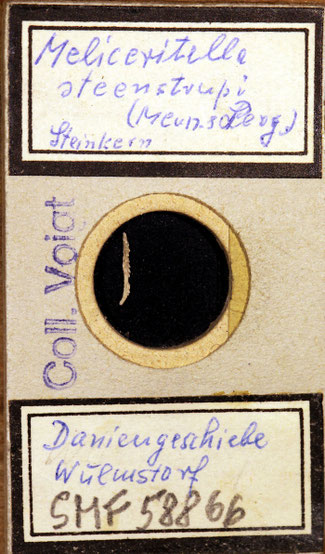 Meliceritella
steenstrupi
(Meun. & Perg.)
Steinkern
Coll. Voigt
Daniengeschiebe
Wulmstorf
SMF 58866